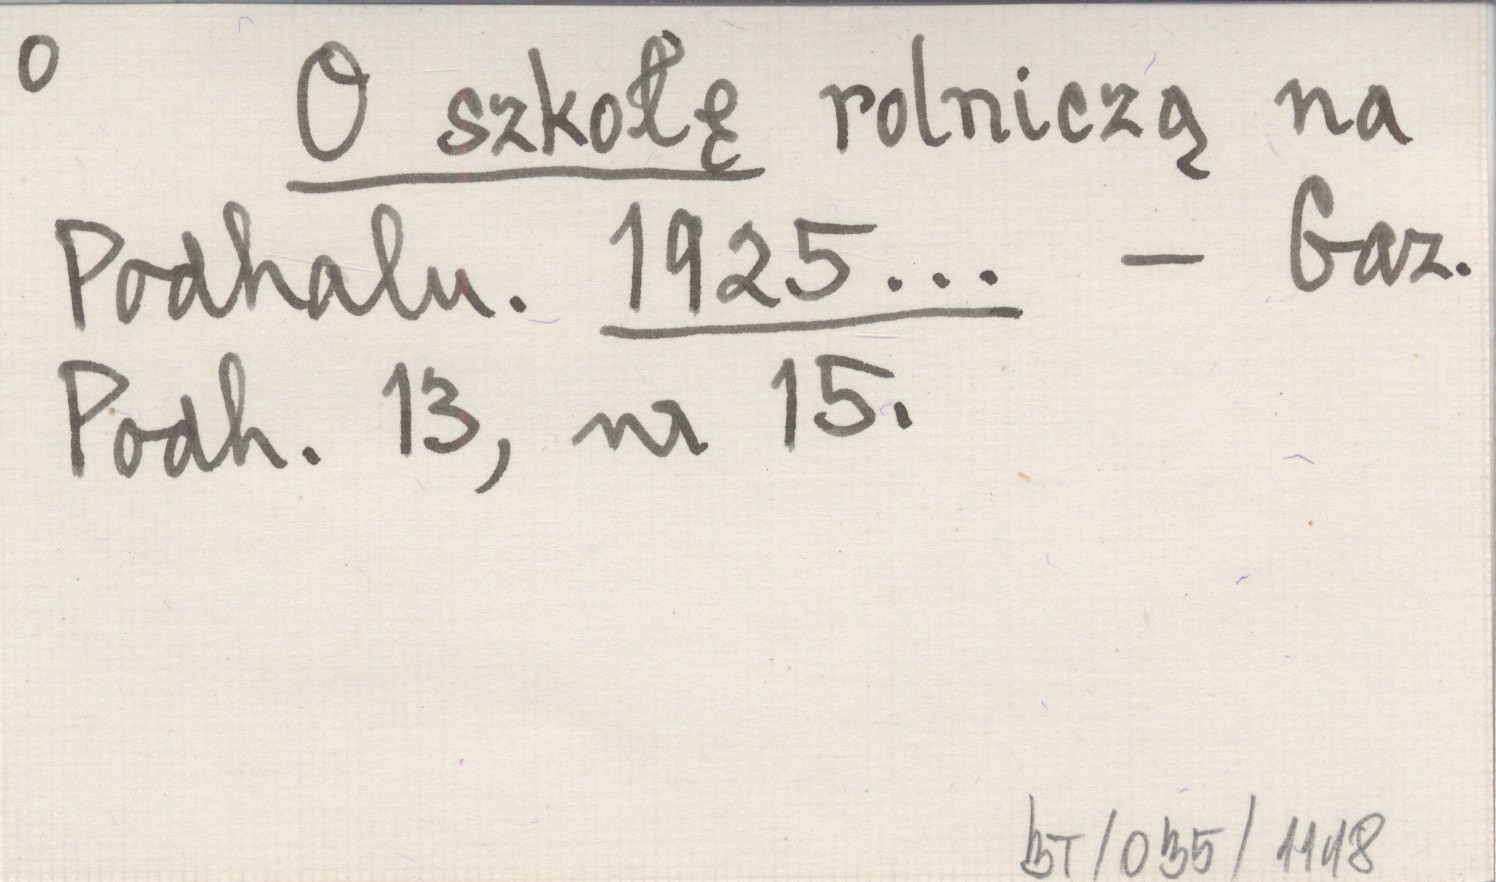 O
O szkołę rolniczą na
Podhalu. 1925... – Gaz.
Podh. 13, nr 15.
BT/035/1118